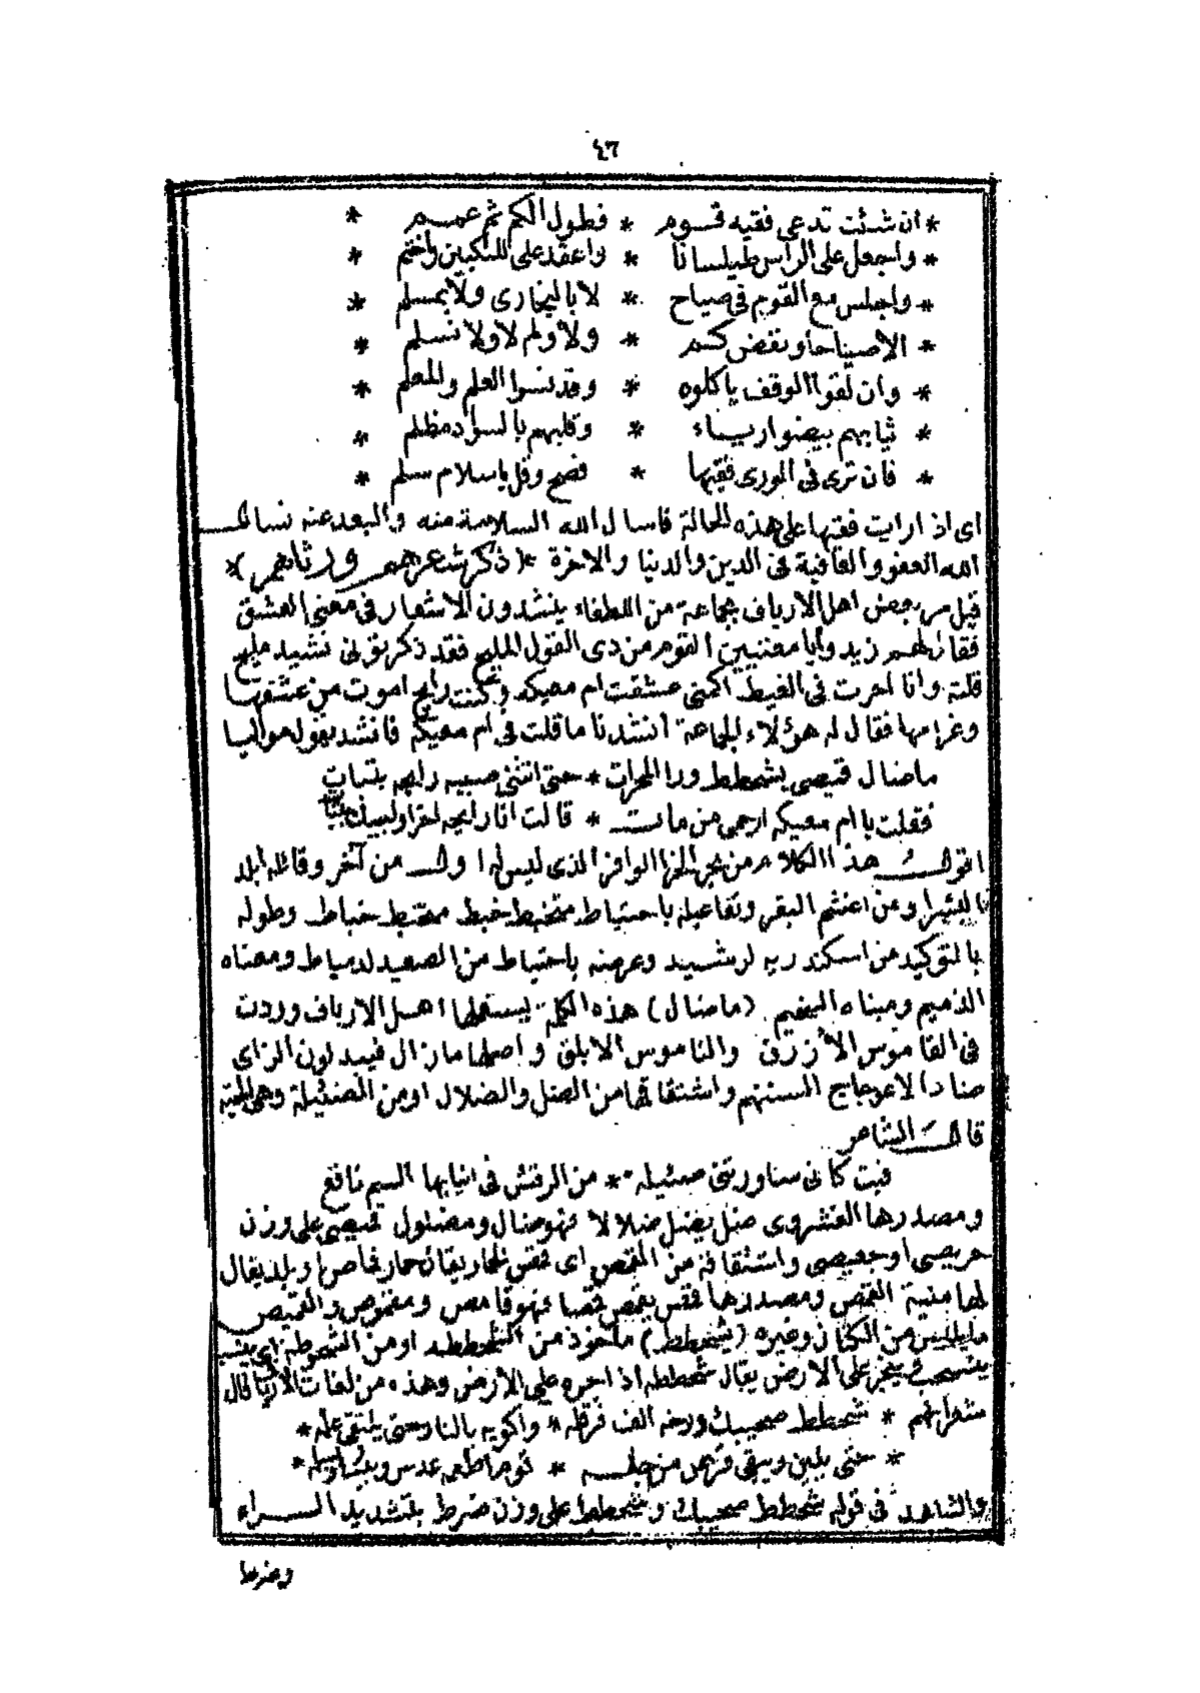 ٤٦
* ان شئت تدعى فقيه قسوم * فطول الكم ثم عمم *
* واجعل على الراس طيلسانا * واعقد على المنكبين واختم *
* واجلس مع القوم فى صياح * لا باليخارى ولا بمسلم *
* الا صياحا ونفض كم * ولا ولم لا ولا نسلم *
* وان لقوا الوقف ياكلوه * وقد نسوا العلم والمعلم *
* ثيابهم بيضوا رياء * وقلبهم بالسواد مظلم *
* فان ترى فى الورى فقيها * فصح وقل ياسلام سلم *
اى اذا رايت فقيها على هذه الحالة فاسال الله السلامة منه والبعد عنه نسال
الله العفو والعافية فى الدين والدنيا والاخرة * (ذكر شعرهم ورثايهم) *
قيل مر بعض اهل الارياف بجماعة من اللطفاء ينشدون الاشعار فى معنى العشق
فقال لهم زيد وايا مغنيين القوم من دى القول المليح فقد ذكرتونى نشيد مليح
قلته وانا احرت فى الغيط اكمنى عشقت ام معيكه وكنت رايح اموت من عشقتها
وغرامها فقال له هؤلاء الجماعة انشدنا ما قلت فى ام معيكه فانشد يقول مواليا
ماضال قميصى يشحطط ورا المحرات * حتى انثنى صبيه رايحه بتبات
فقلت يا ام معيكه ارحمى من مات * قالت انا رايحه
اقول هذا الكلام من بحر الخرا الوافر الذى ليس له اول من آخر وقائله ابلد
البشر ومن اغشم البقر وتفاعيله باحتياط متخبط خبط متخبط خباط وطوله
بالتوكيد من اسكندريه لرشيد وعرضه باحتياط من الصعيد لدمياط ومعناه
الذميم ومبناه السقيم (ماضال) هذه الكلمة يستعملها اهل الارياف وردت
فى القاموس الأزرق والناموس الابلق واصلها مازال فيبدلون الزاى
ضادا لاعوجاج السنتهم واشتقاقها من الضل والضلال او من الضئيلة وهى الحية
قال الشاعر
فبت كانى ساورتنى ضئيلة * من الرقش فى انيابها السم ناقع
ومصدرها الفشروى ضل يضل ضلالا فهو ضال ومضلول قميصى على وزن
حريصى او جعيصى واشتقاقه من القمص اى قمص الحمار يقال حمار قماص او بلد يقال
لها منية القمص ومصدرها قمص يقمص قمصا فهو قامص ومقموص والقميص
ما يلبس من الكتان وغيره (يشحطط) ماخوذ من الشحططه او من الشحوطه اى
ينسحب وينجر على الارض يقال شحططه اذا اجره على الارض وهذه من لغات الارياف قال
شعرايهم * شحطط صحيبك ورخه الف فرقله * واكويه بالنار حتى يلتقى عله *
* حتى يلين ويبقى قرص من جله *
والشاهد فى قوله شحطط صحيبك وشحطط على وزن ضرط بتشديد الراء
وضرطا